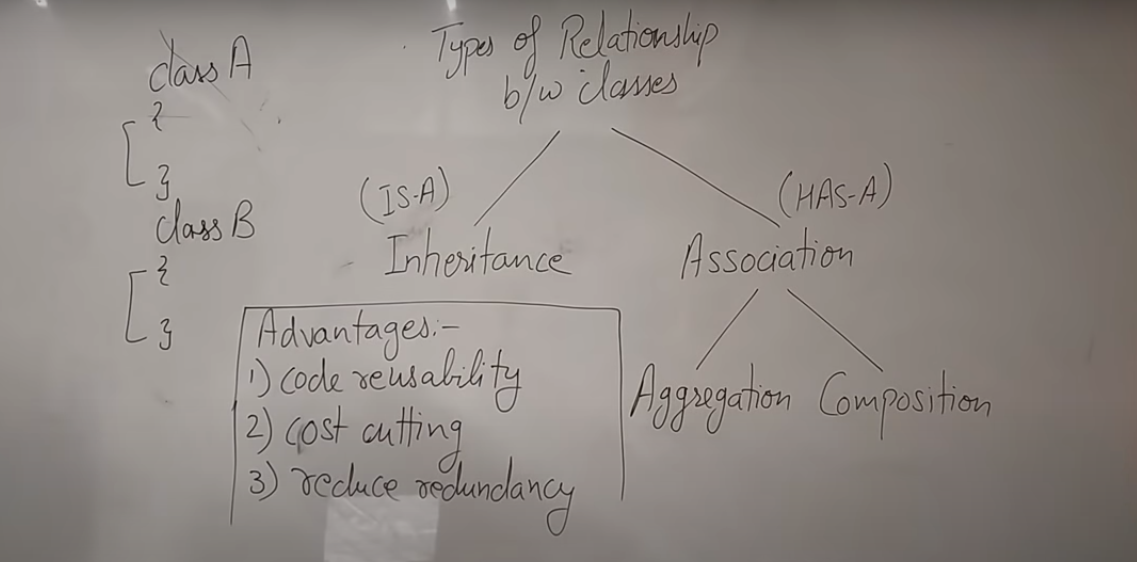 Types of Relationship
b/w classes
class A
{
}
class B
{
}
(IS-A)
Inheritance
(HAS-A)
Association
Aggregation
Composition
Advantages:-
1) code reusability
2) cost cutting
3) reduce redundancy